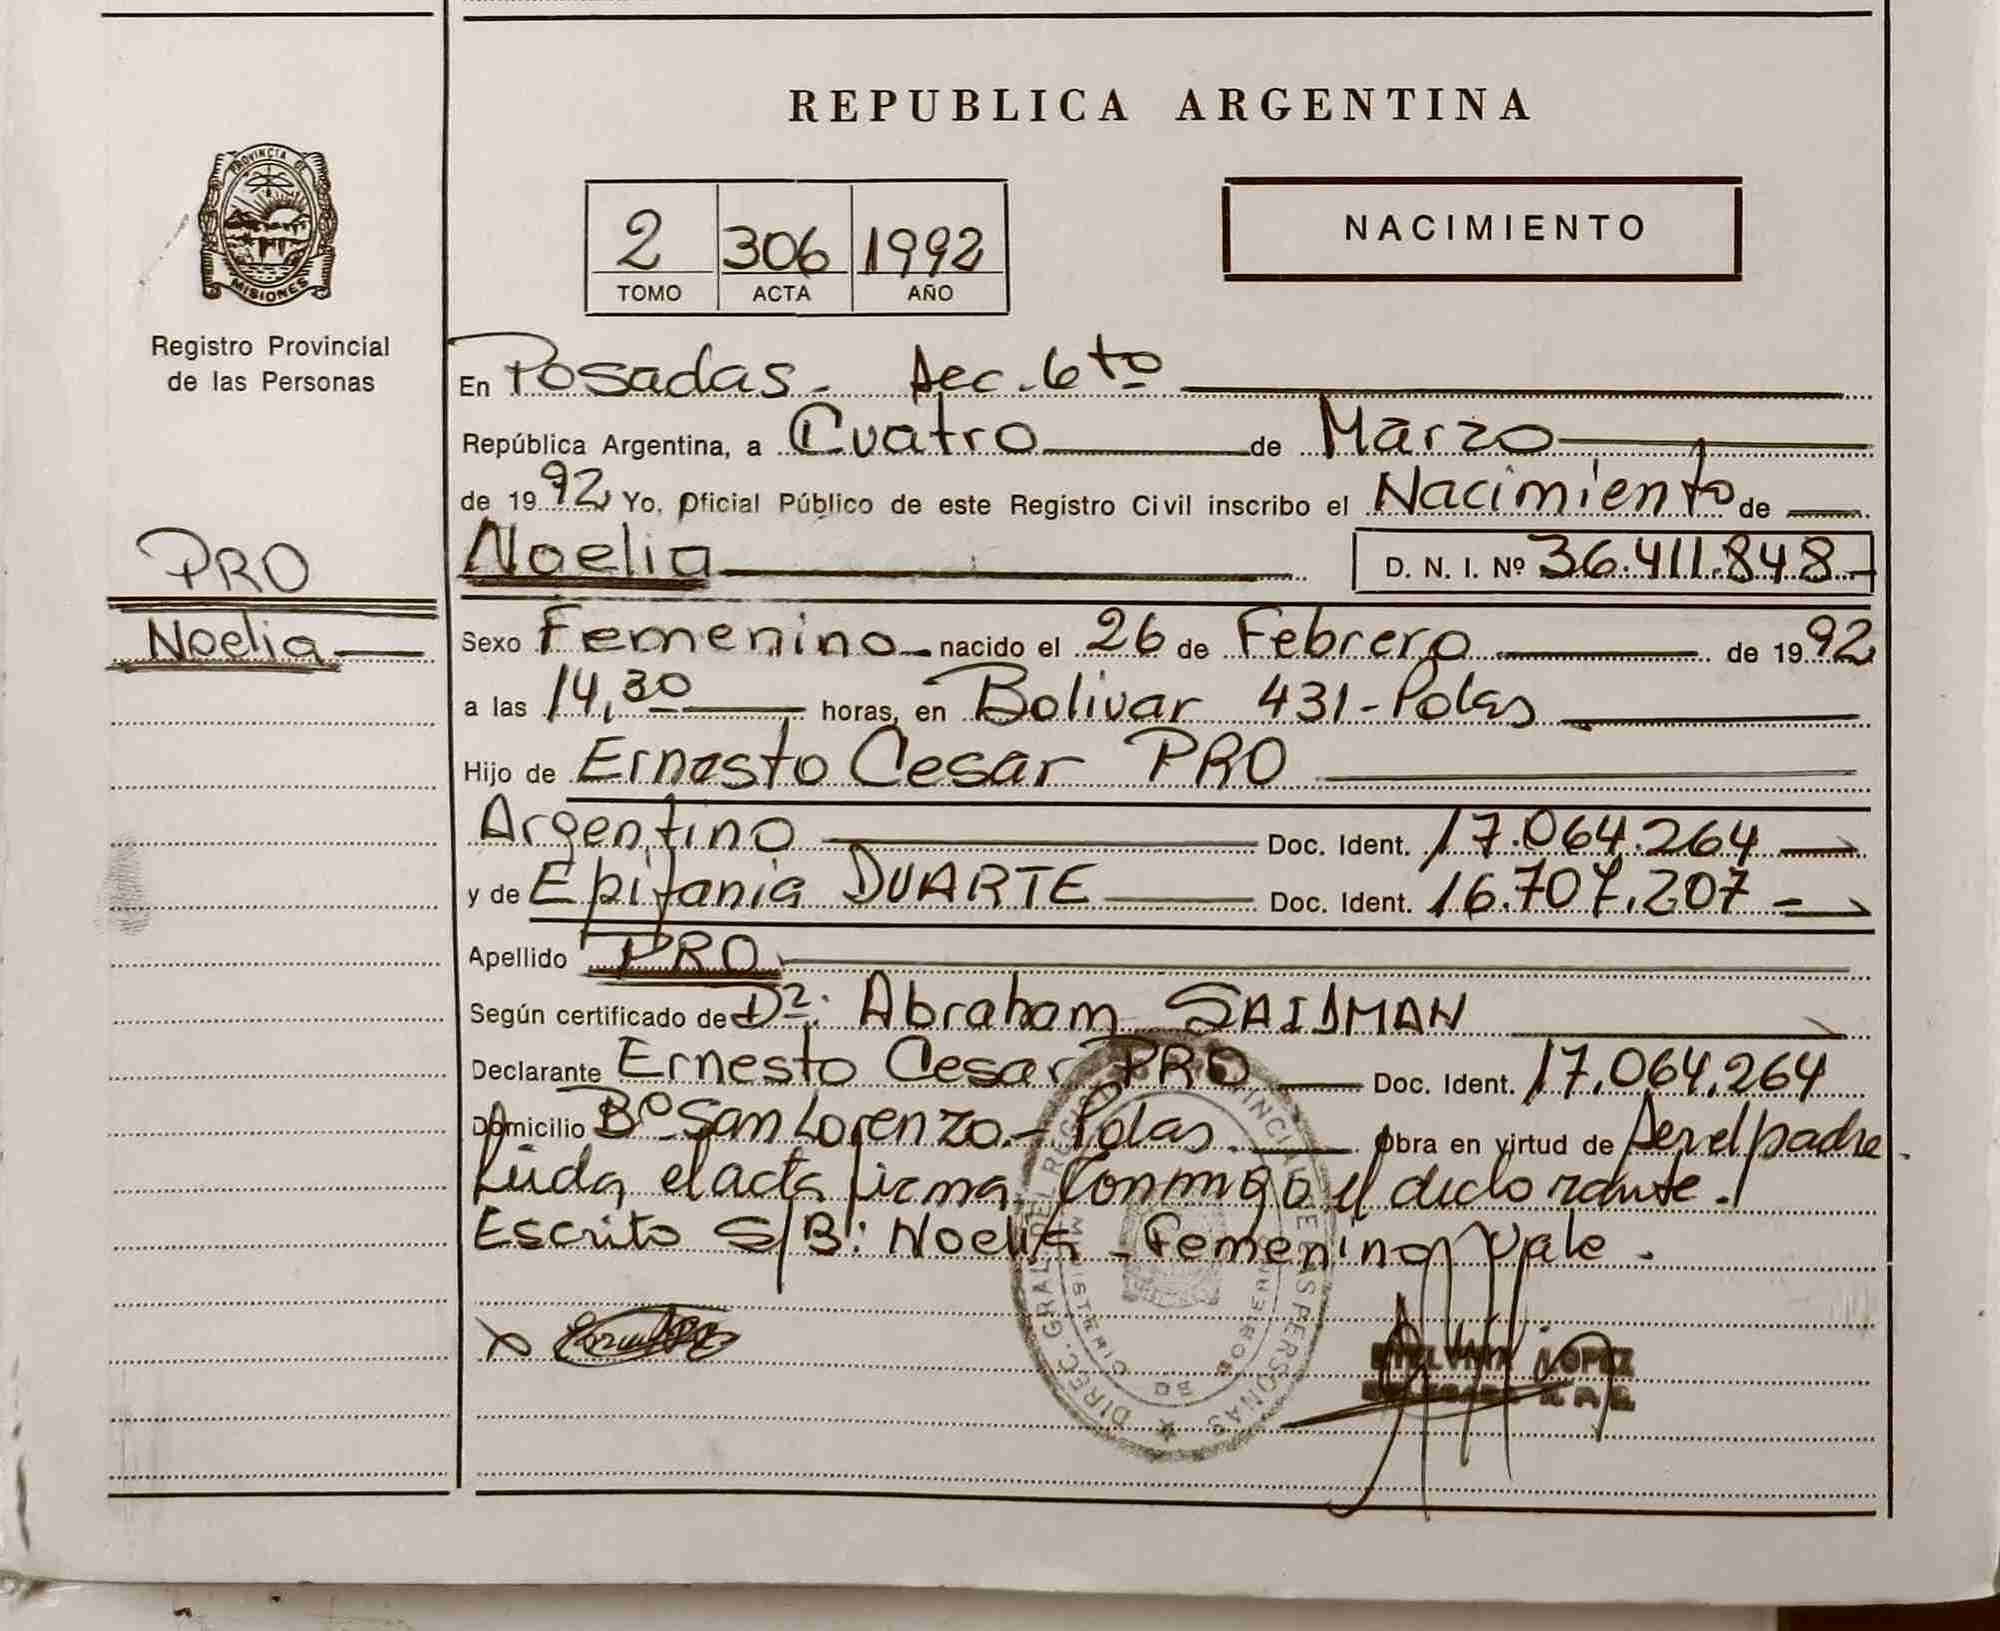 REPUBLICA ARGENTINA
PROVINCIA DE
MISIONES
Registro Provincial
de las Personas
2 306 1992
TOMO ACTA AÑO
NACIMIENTO
En Posadas - Sec. 6to
República Argentina, a Cuatro de Marzo
de 1992 Yo, Oficial Público de este Registro Civil inscribo el Nacimiento de
Noelia D. N. I. Nº 36.411.848-
PRO
Noelia
Sexo Femenino nacido el 26 de Febrero de 1992
a las 14,30 horas, en Bolivar 431-Pdas
Hijo de Ernesto Cesar PRO
Argentino Doc. Ident. 17.064.264
y de Epifania DUARTE Doc. Ident. 16.707.207-
Apellido PRO
Según certificado de Dr: Abraham SAIDMAN
Declarante Ernesto Cesar PRO Doc. Ident. 17.064.264
Domicilio Bº San Lorenzo.- Pdas Obra en virtud de Ser el padre.
Leida el acta firma conmigo el declarante.
Escrito S/B: Noelia - Femenino Vale.
DIREC. GRAL. DEL REGISTRO PROVINCIAL DE LAS PERSONAS
LOPEZ